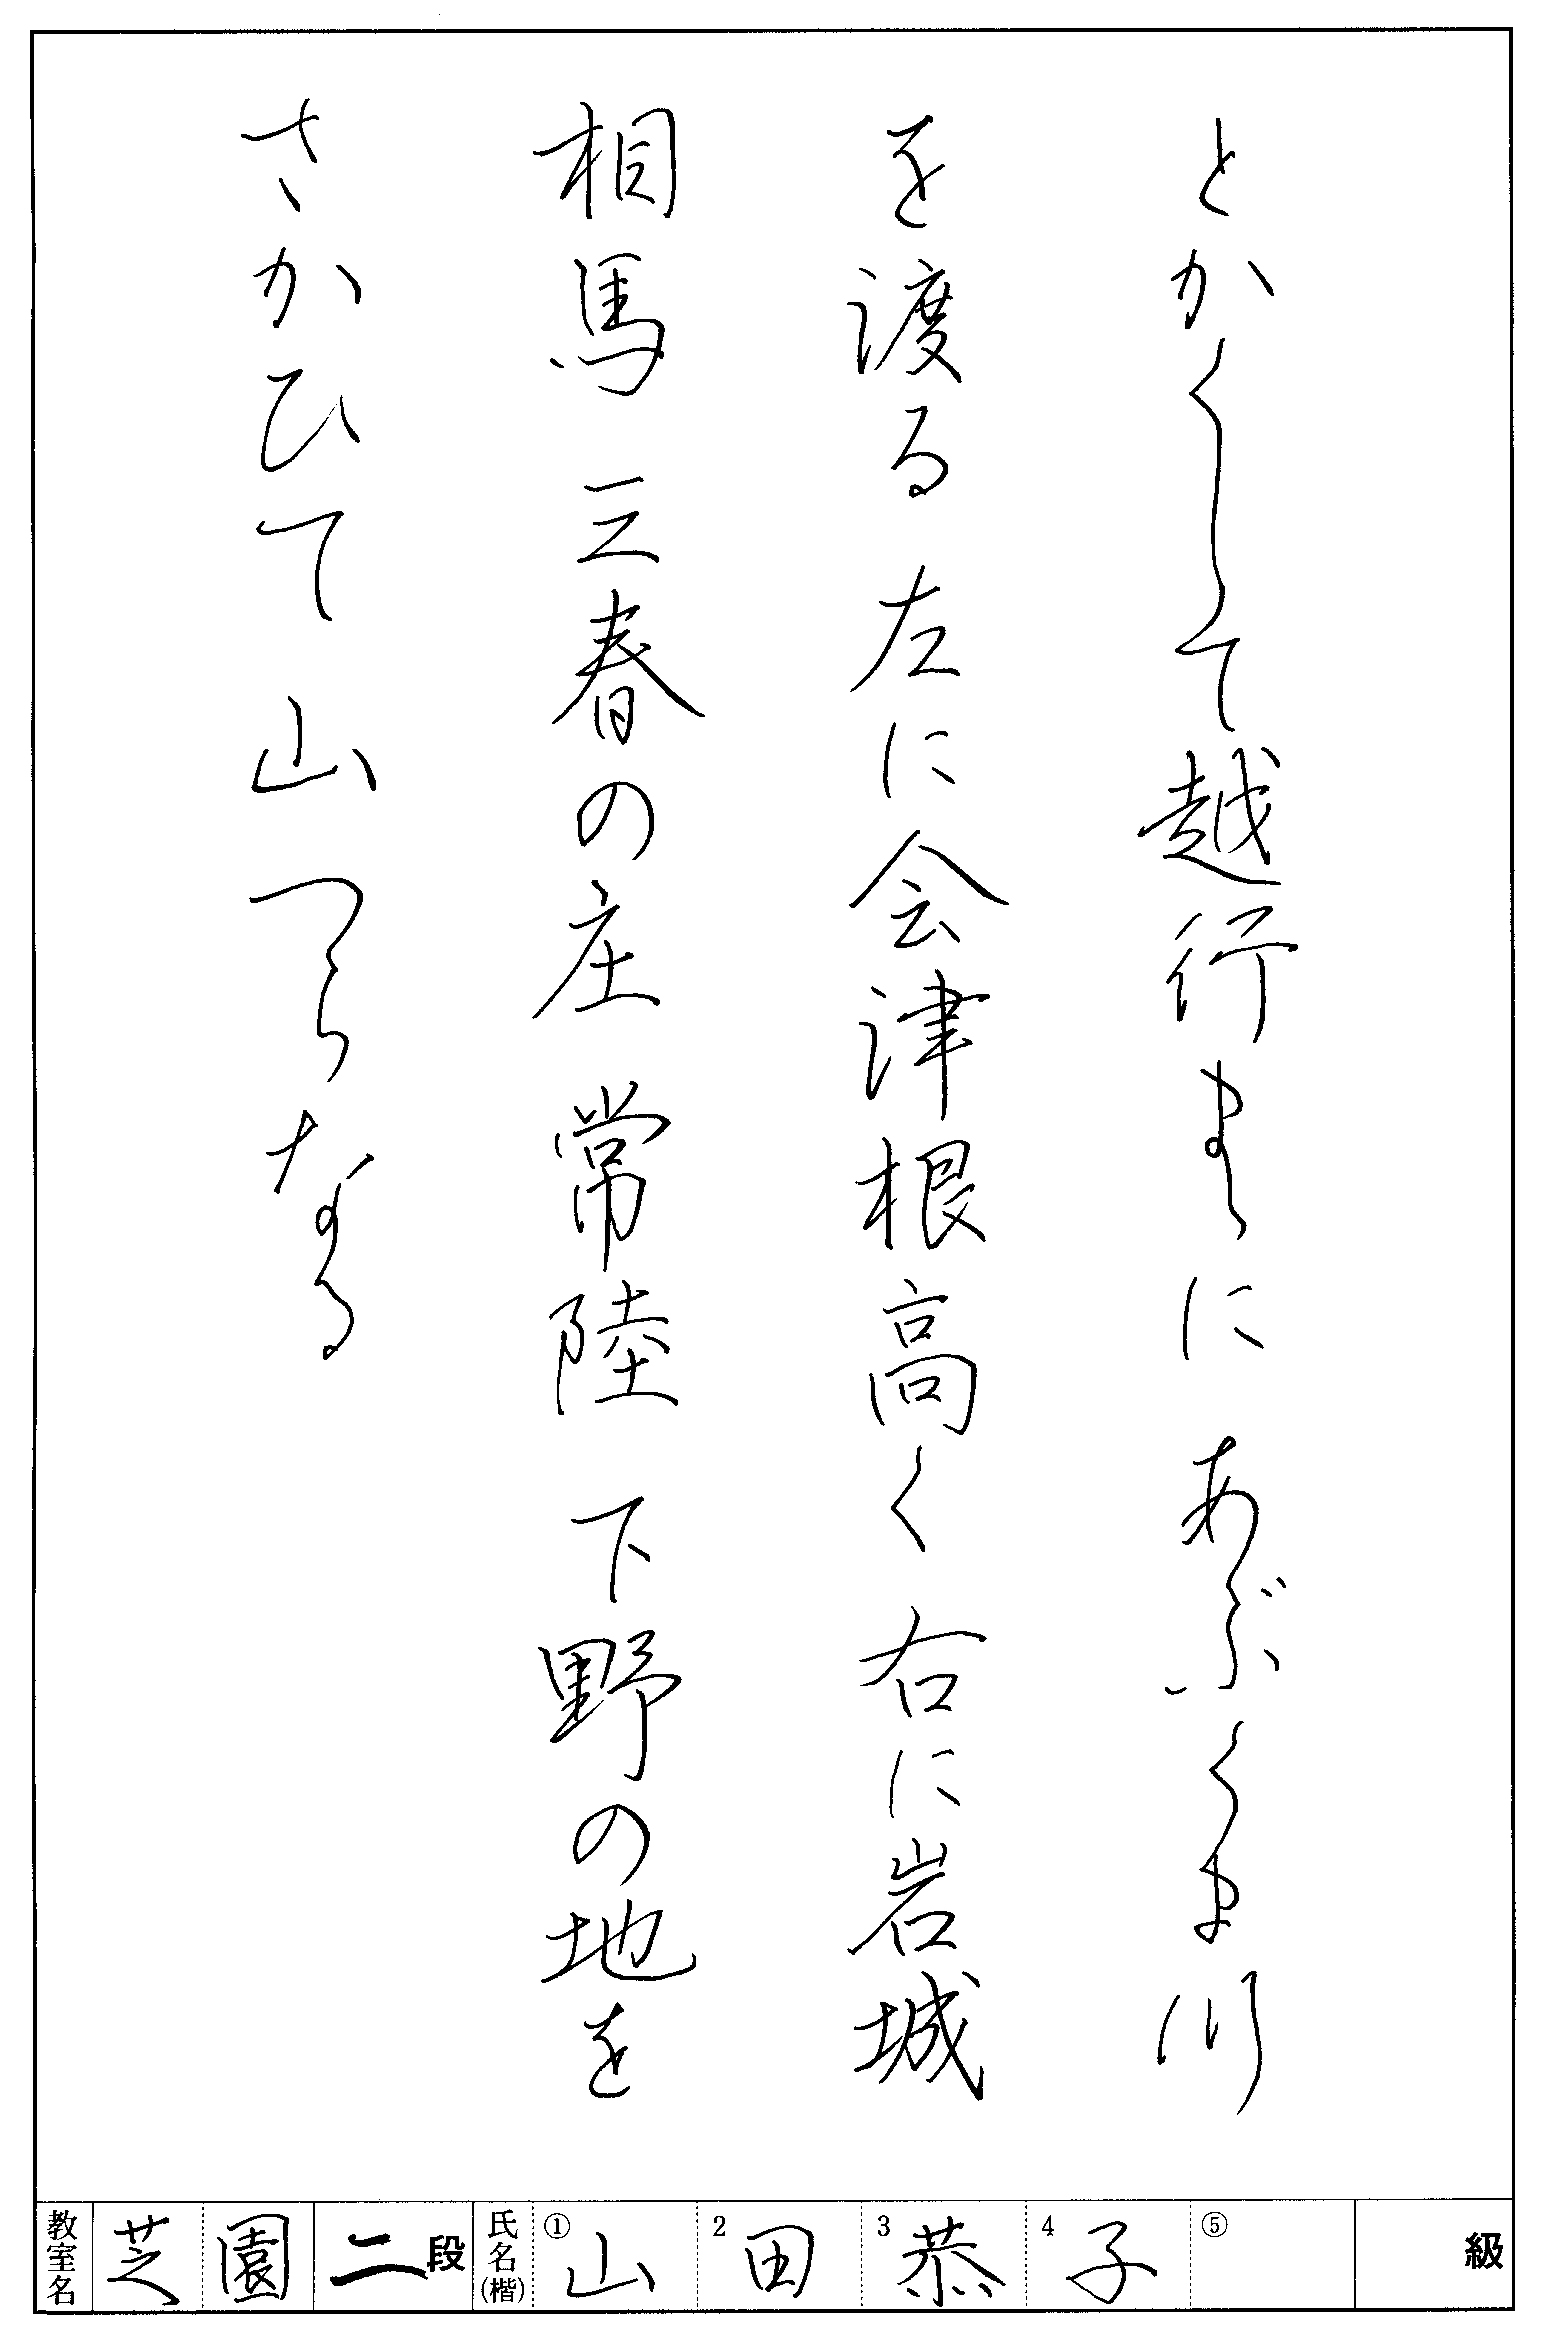 とかくして越行まゝに　あぶくま川
を渡る　左に会津根高く　右に岩城
相馬　三春の庄　常陸　下野の地を
さかひて　山つらなる
教室名　芝園　二段　氏名(楷)　①山　2田　3恭　4子　⑤　級